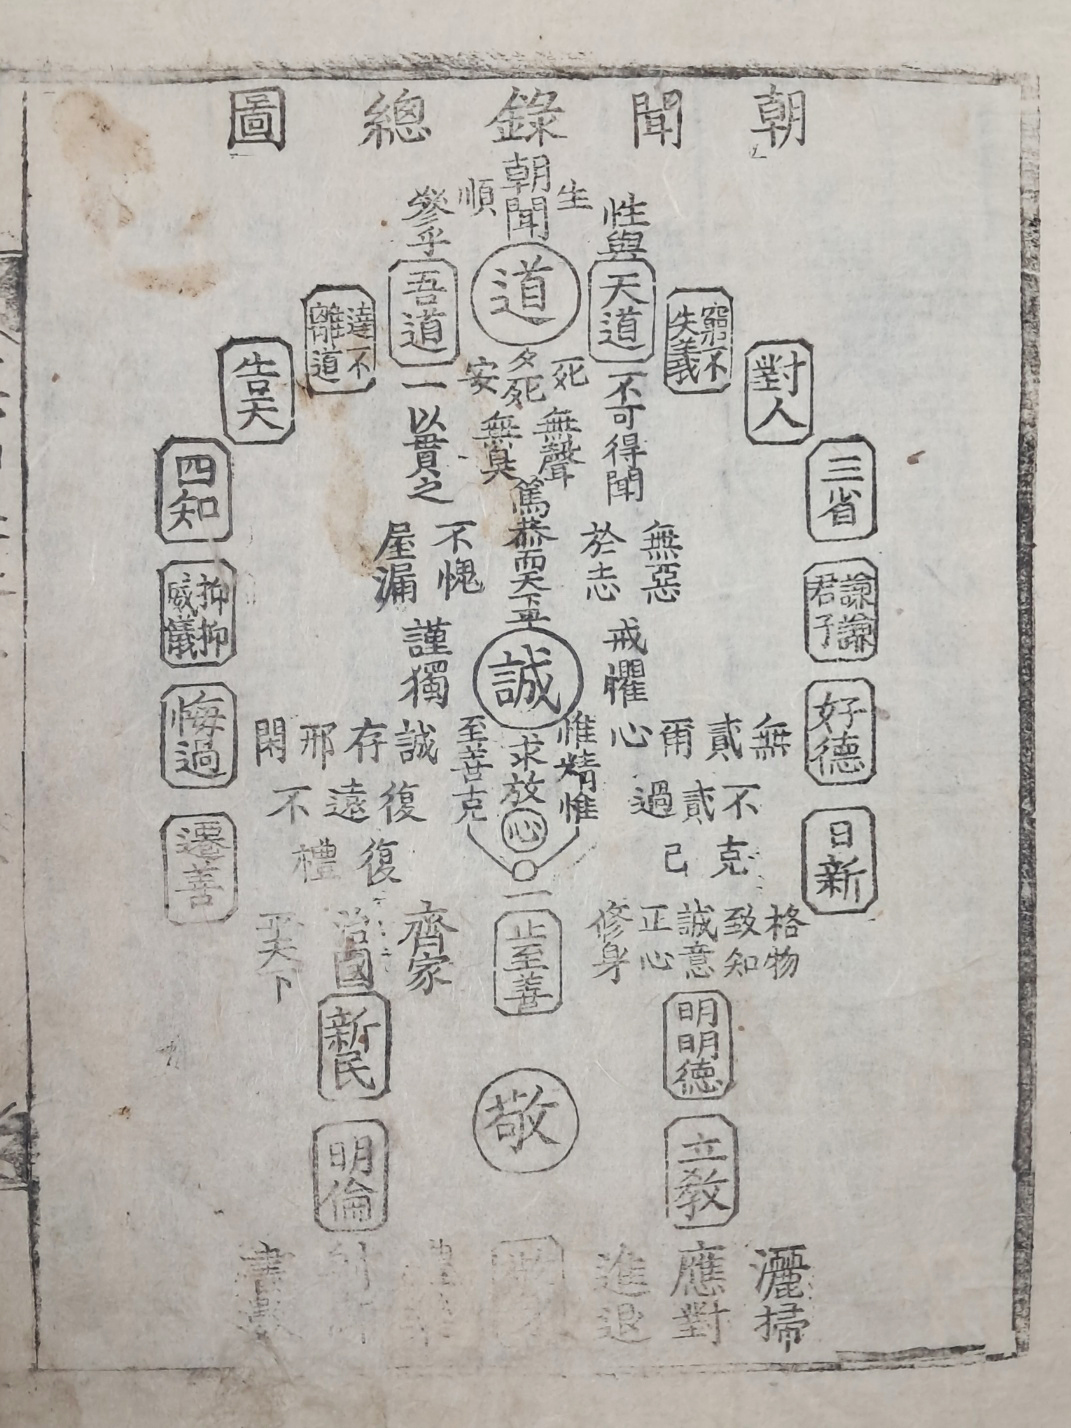 朝聞錄總圖
朝聞
生
順
道
夕死
死
安
無聲
無臭
篤恭而天下平
誠
求放
心
惟精惟
至善克
一
止至善
敬
性與
天道
不可得聞
參乎
吾道
一以貫之
窮不失義
達不離道
對人
告天
三省
四知
謙謙君子
抑抑威儀
好德
悔過
日新
遷善
無惡
於志
不愧
屋漏
戒懼
謹獨
無貳爾心
不貳過
克己
閑邪存誠
不遠復
復禮
格物
致知
誠意
正心
修身
齊家
治國
平天下
明明德
新民
立敎
明倫
灑掃
應對
進退